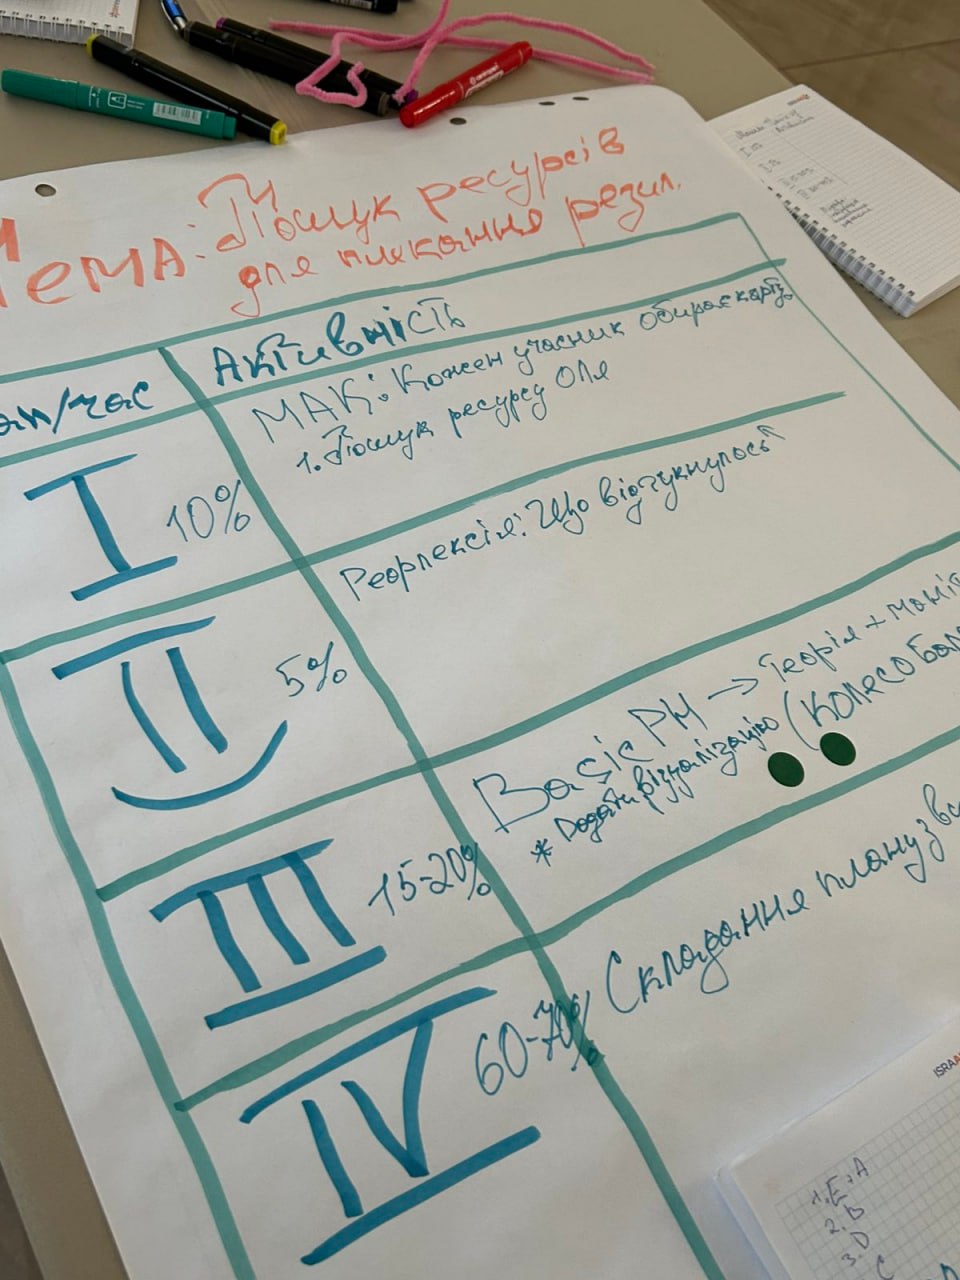 Тема: Пошук ресурсів
для плекання резил.
Активність
МАК: Кожен учасник обирає карту
1. Пошук ресурсу Оля
I 10%
Рефлексія: Що відгукнулось
II 5%
Basic PH → Теорія + маніп
* Додати візуалізацію (колесо Бал
III 15-20%
Складання плану з вс
IV 60-70%
ISRAA
1. E+A
2. B
3. D
C